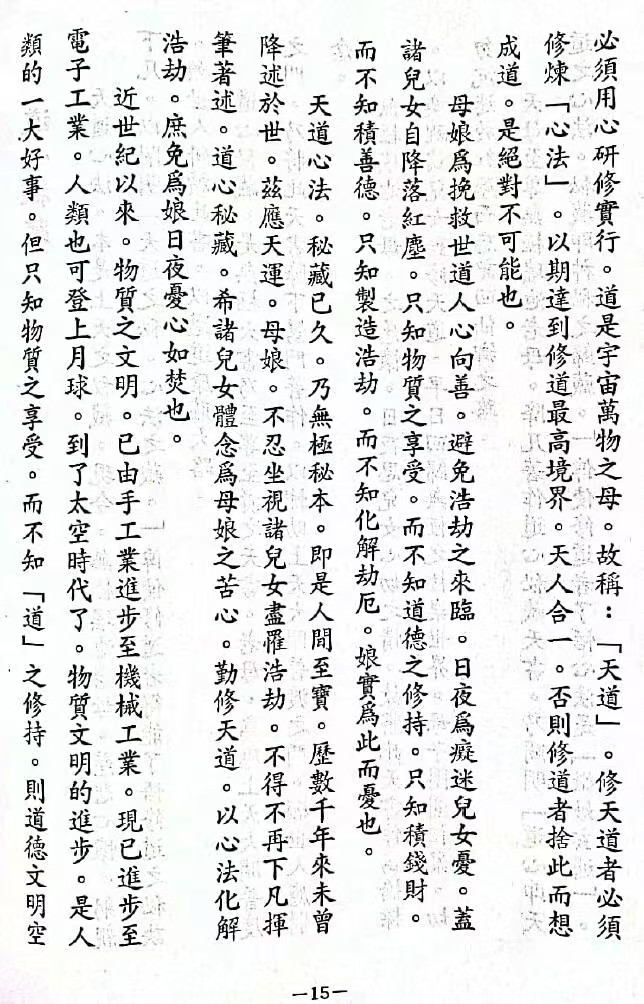 必須用心研修實行。道是宇宙萬物之母。故稱：「天道」。修天道者必須
修煉「心法」。以期達到修道最高境界。天人合一。否則修道者捨此而想
成道。是絕對不可能也。
母娘爲挽救世道人心向善。避免浩劫之來臨。日夜爲癡迷兒女憂。蓋
諸兒女自降落紅塵。只知物質之享受。而不知道德之修持。只知積錢財。
而不知積善德。只知製造浩劫。而不知化解劫厄。娘實爲此而憂也。
天道心法。秘藏已久。乃無極秘本。即是人間至寶。歷數千年來未曾
降述於世。茲應天運。母娘。不忍坐視諸兒女盡罹浩劫。不得不再下凡揮
筆著述。道心秘藏。希諸兒女體念爲母娘之苦心。勤修天道。以心法化解
浩劫。庶免爲娘日夜憂心如焚也。
近世紀以來。物質之文明。已由手工業進步至機械工業。現已進步至
電子工業。人類也可登上月球。到了太空時代了。物質文明的進步。是人
類的一大好事。但只知物質之享受。而不知「道」之修持。則道德文明空
—15—